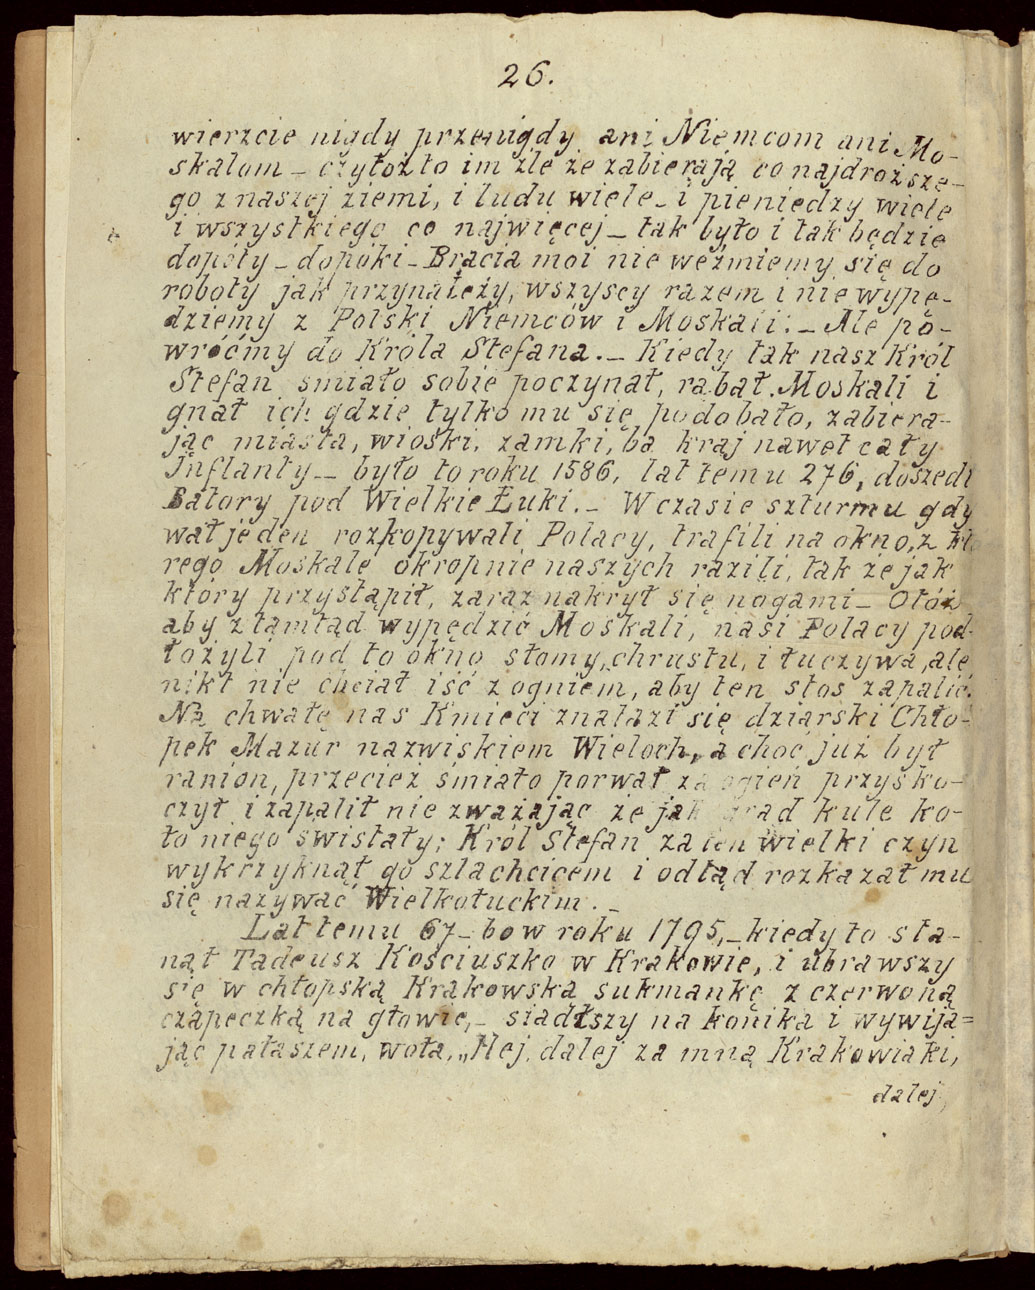 26.
wierzcie nigdy przenigdy ani Niemcom ani Mo-
skalom – czyłoż to im źle że zabierają co najdroższe-
go z naszej ziemi, i ludu wiele – i pieniędzy wiele
i wszystkiego co najwięcej – tak było i tak będzie
dopóty – dopóki – Bracia moi nie weźmiemy się do
roboty jak przynależy, wszyscy razem i nie wypę-
dziemy z Polski Niemców i Moskali. – Ale po-
wróćmy do Króla Stefana. – Kiedy tak nasz Król
Stefan smiało sobie poczynał, rąbał Moskali i
gnał ich gdzie tylko mu się podobało, zabiera-
jąc miasta, wioski, zamki, ba kraj nawet cały
Inflanty – było to roku 1586, lat temu 276, doszedł
Batory pod Wielkie Łuki. – W czasie szturmu gdy
wał jeden rozkopywali Polacy, trafili na okno, z któ
rego Moskale okropnie naszych razili, tak że jak
który przystąpił, zaraz nakrył się nogami – Otóż
aby z tamtąd wypędzić Moskali, nasi Polacy pod-
łożyli pod to okno słomy, chrustu, i łuczywa, ale
nikt nie chciał iść z ogniem, aby ten stos zapalić.
Na chwałę nas Kmieci znalazł się dziarski Chło-
pek Mazur nazwiskiem Wieloch, a choć już był
ranion, przecież śmiało porwał za ogień przysko-
czył i zapalił nie zważając że jak grad kule ko-
ło niego swistały; Król Stefan za ten wielki czyn
wykrzyknął go szlachcicem i odtąd rozkazał mu
się nazywać Wielkołuckim. –
Lat temu 67 – bo w roku 1795, – kiedy to sta-
nął Tadeusz Kościuszko w Krakowie, i ubrawszy
się w chłopską Krakowską sukmankę z czerwoną
czapeczką na głowie, – siadłszy na konika i wywija=
jąc pałaszem, woła, „Hej, dalej za mną Krakowiaki,
dalej